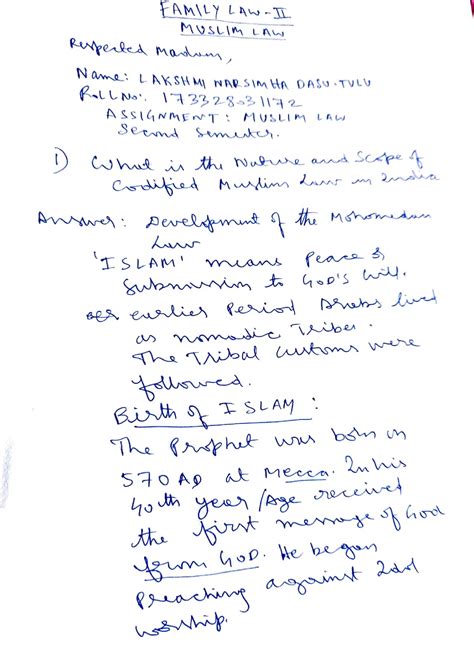 FAMILY LAW-II
MUSLIM LAW
Respected Madam,
Name: LAKSHMI NARSIMHA DASU.TULU
Roll No: 173328031172
ASSIGNMENT: MUSLIM LAW
Second Semester.
1) What is the Nature and Scope of
Codified Muslim Law in India
Answer: Development of the Mohomedan
Law
'ISLAM' means Peace &
Submission to GOD'S Will.
earlier Period Arabs lived
as nomadic Tribes.
The Tribal Customs were
followed.
Birth of ISLAM:
The Prophet was born in
570 AD at Mecca. In his
40th year/Age received
the first message of God
from GOD. He began
Preaching against Idol
worship.